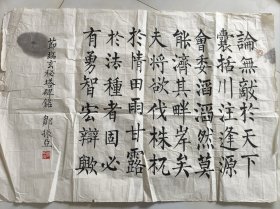 論無敵於天下
囊括川注逢源
會委滔滔然莫
能濟其畔岸矣
夫將欲伐株杌
於情田雨甘露
於法種者固必
有勇智宏辯歟
節臨玄秘塔碑銘 鄒振